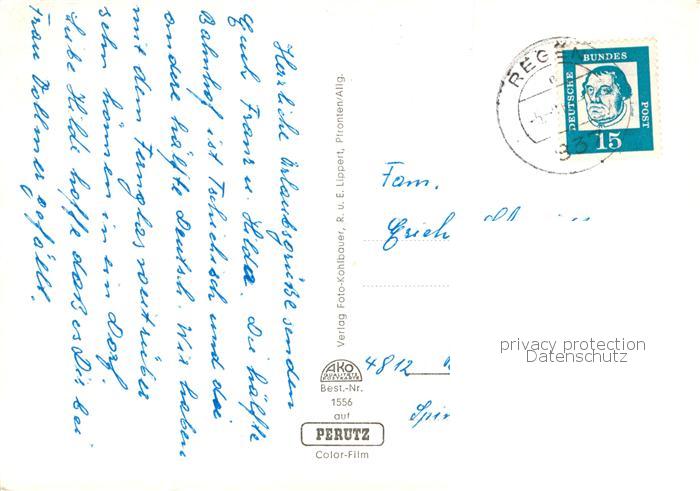 Herzliche Urlaubsgrüße senden
Euch Franz u. Hilda. Die hälfte
Bahnhof ist Tschichisch und die
andere hälfte Deutsch. Wir haben
mit dem Fernglas weitrüber
sehn können in ein Dorf.
Liebe Hilde hoffe daß es Dir bei
Frau Vollmer gefällt.
Verlag Foto-Kohlbauer, R. u. E. Lippert, Pfronten/Allg.
AKO
QUALITÄTS
POSTKARTE
Best.-Nr.
1556
auf
PERUTZ
Color-Film
REGEN
83
DEUTSCHE
BUNDES
POST
15
Fam.
Erich
4812
privacy protection
Datenschutz